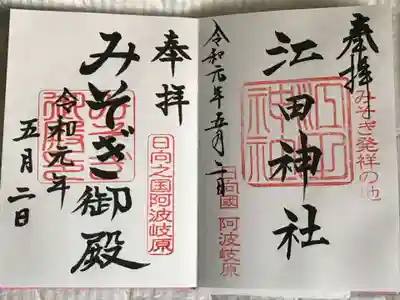 奉拝
みそぎ発祥の地
江田神社
江田神社
日向國 阿波岐原
令和元年五月二日
奉拝
日向之国阿波岐原
みそぎ御殿
令和元年
五月二日